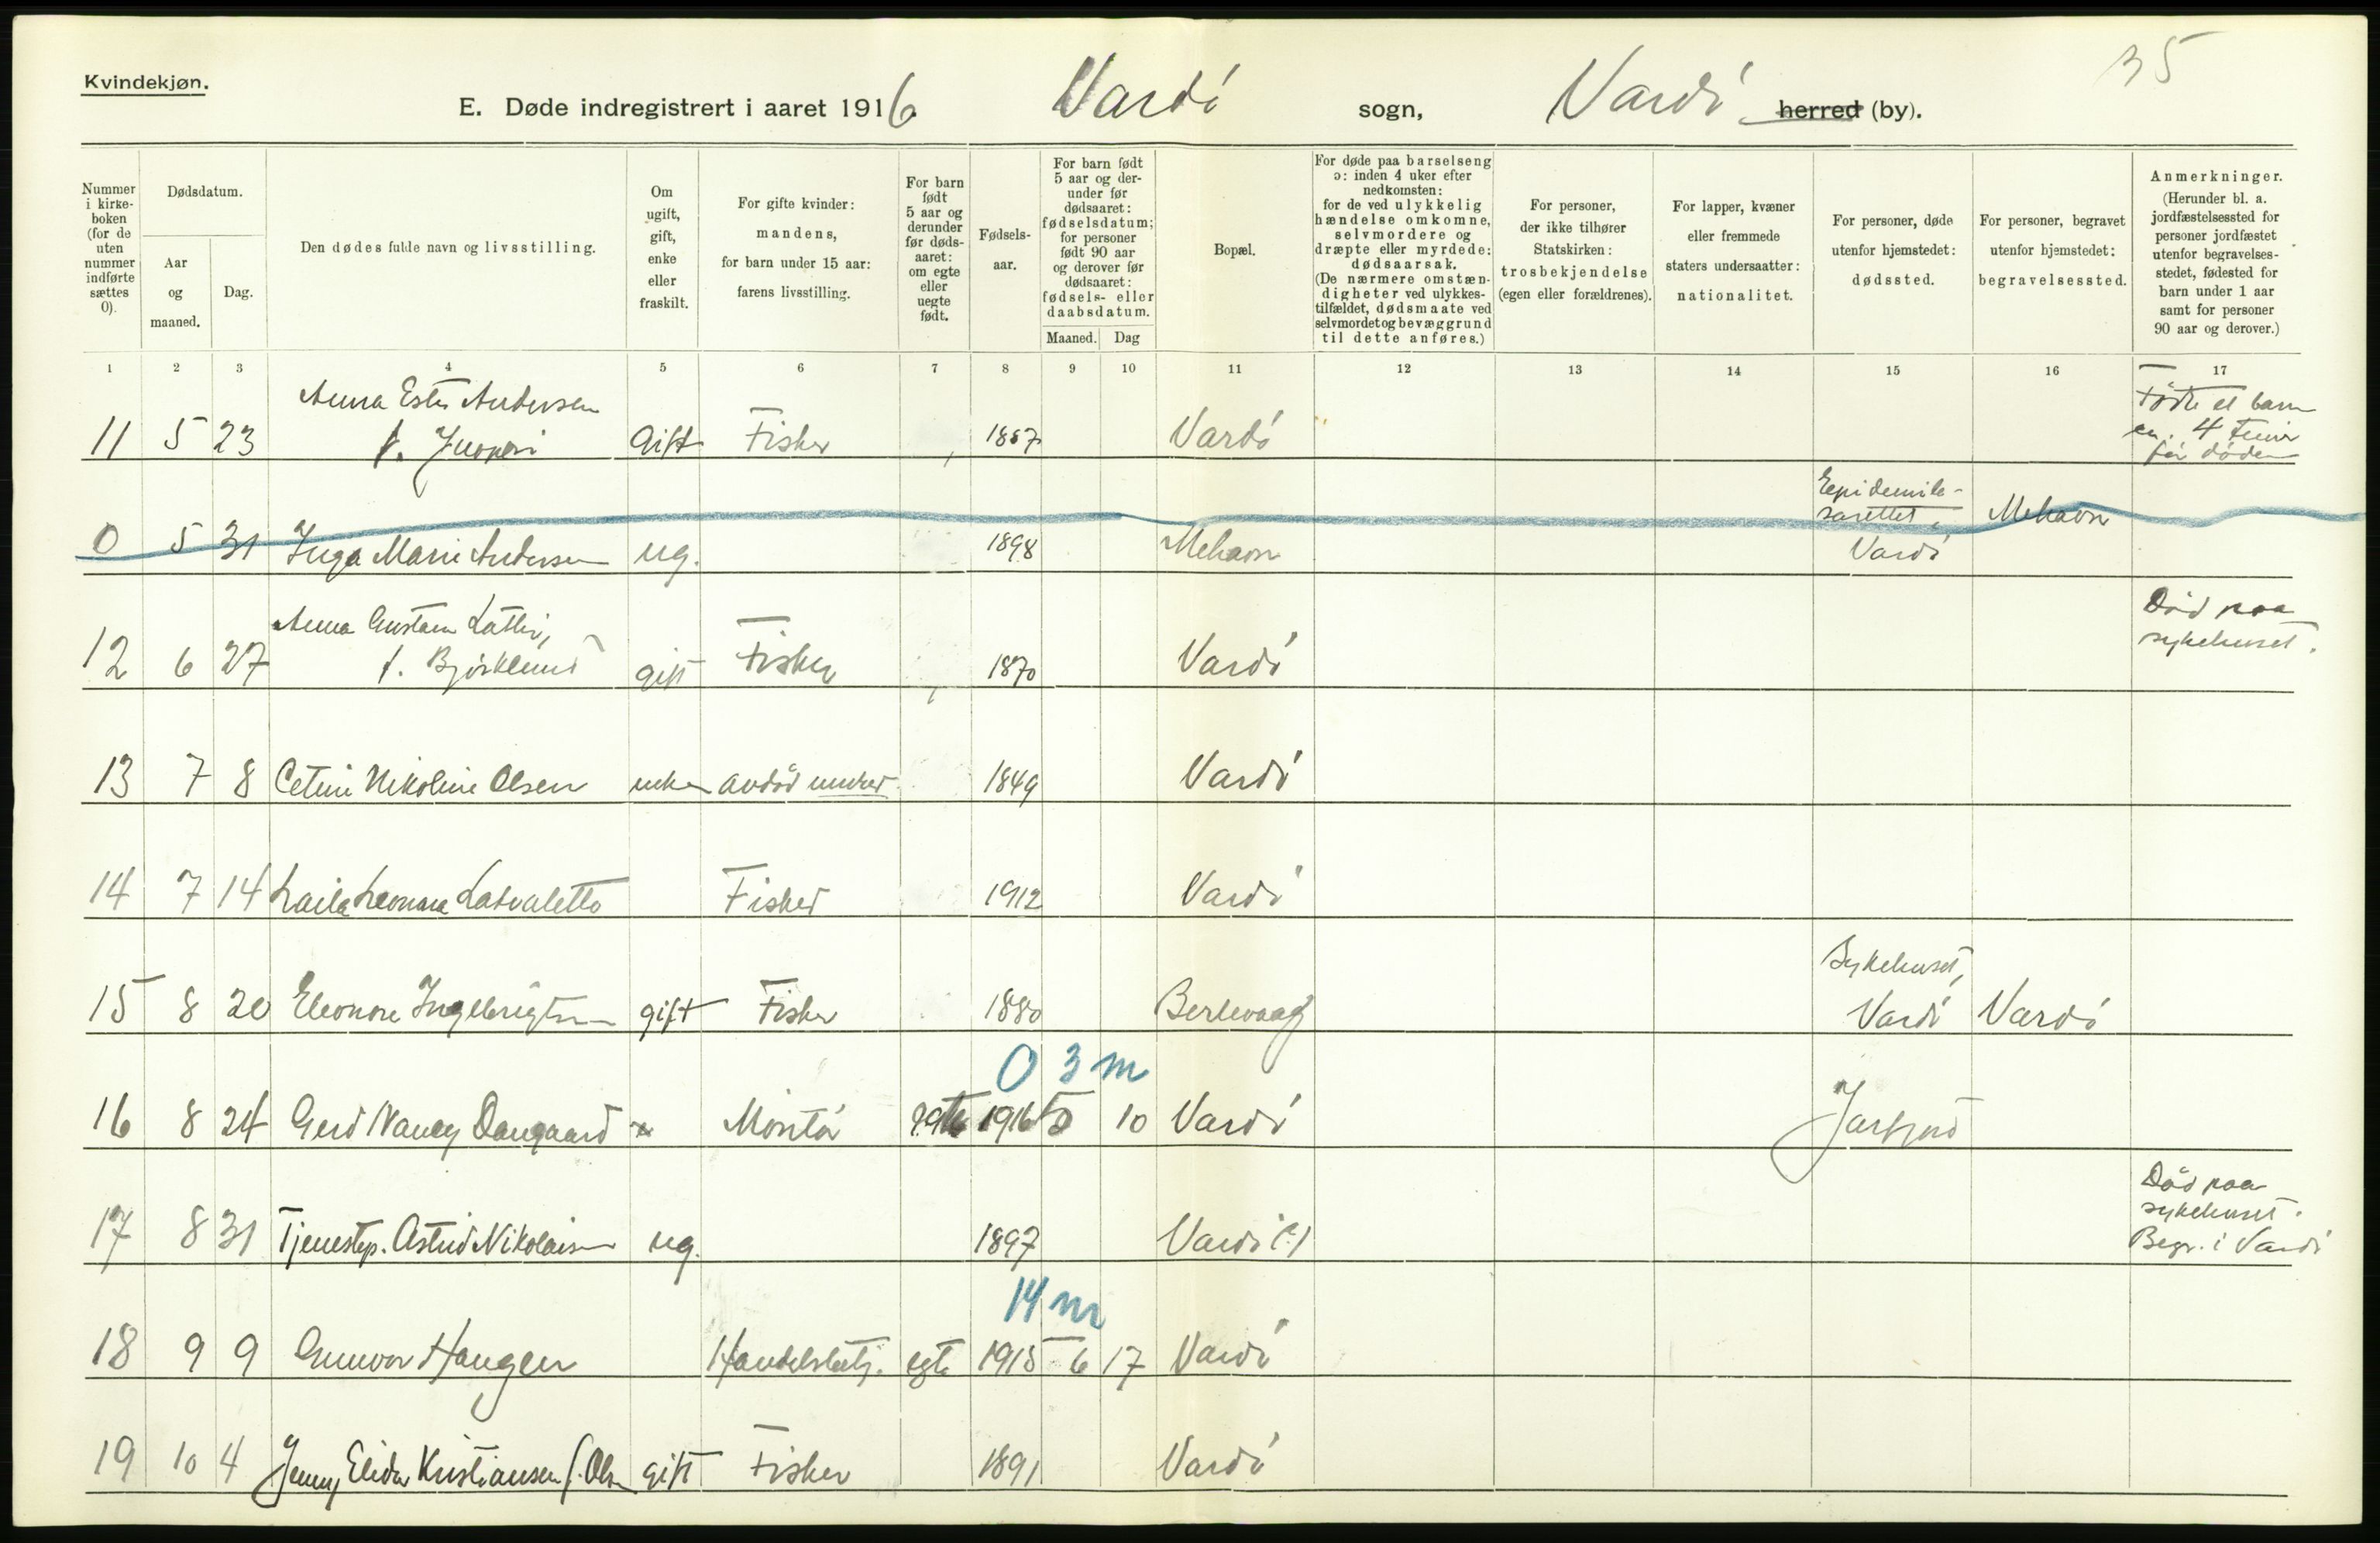 Kvindekjøn.
35
E. Døde indregistrert i aaret 1916. Vardø sogn, Vardø herred (by).
Nummer i kirkeboken (for de uten nummer indførte sættes 0).
Dødsdatum.
Aar og maaned.
Dag.
Den dødes fulde navn og livsstilling.
Om ugift, gift, enke eller fraskilt.
For gifte kvinder: mandens, for barn under 15 aar: farens livsstilling.
For barn født 5 aar og derunder før dødsaaret: om egte eller uegte født.
Fødselsaar.
For barn født 5 aar og derunder før dødsaaret: fødselsdatum; for personer født 90 aar og derover før dødsaaret: fødsels- eller daabsdatum.
Maaned. Dag
Bopæl.
For døde paa barselseng ɔ: inden 4 uker efter nedkomsten: for de ved ulykkelig hændelse omkomne, selvmordere og dræpte eller myrdede: dødsaarsak. (De nærmere omstændigheter ved ulykkestilfældet, dødsmaate ved selvmordet og bevæggrund til dette anføres.)
For personer, der ikke tilhører Statskirken: trosbekjendelse (egen eller forældrenes).
For lapper, kvæner eller fremmede staters undersaatter: nationalitet.
For personer, døde utenfor hjemstedet: dødssted.
For personer, begravet utenfor hjemstedet: begravelsessted.
Anmerkninger. (Herunder bl. a. jordfæstelsessted for personer jordfæstet utenfor begravelsesstedet, fødested for barn under 1 aar samt for personer 90 aar og derover.)
1 2 3 4 5 6 7 8 9 10 11 12 13 14 15 16 17
Anna Ester Andersen
11 5 23 f. Gift Fisker 1857 Vardø
Fødte et barn
4 timer
før døden
Epidemila-
sarettet,
0 5 31 Inga Marie Andersen ug. 1898 Mehavn Vardø Mehavn
Anna Gustava Lattu,
12 6 27 f. Bjørklund gift Fisker 1870 Vardø
Død paa
sykehuset.
13 7 8 Nikoline Olsen enke avdød 1849 Vardø
14 7 14 Laila Leonora Fisker 1912 Vardø
Sykehuset,
15 8 20 Eleonore Ingebrigtsen gift Fisker 1880 Berlevaag Vardø Vardø
0 3 m
16 8 24 Gerd Nancy Daugaard Montør egte 1916 5 10 Vardø Jarfjord
17 8 31 Tjenestep. Astrid Nikolaisen ug. 1897 Vardø (?)
Død paa
sykehuset.
Begr. i Vardø
14 m
18 9 9 Gunvor Haugen Handelsbetj. egte 1915 6 17 Vardø
19 10 4 Jenny Elida Kristiansen f. Olsen gift Fisker 1891 Vardø